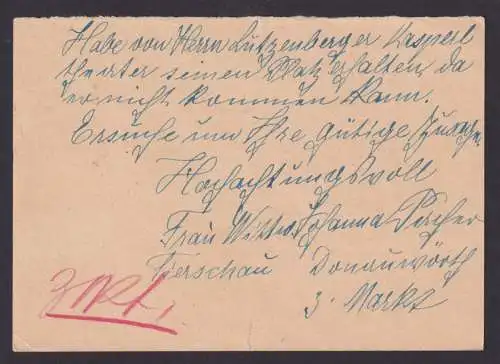 Habe von Herrn Lutzenberger Kasperl
theater seinen Platz erhalten, da
er nicht kommen kann.
Ersuche um Ihre gütige Zusage.
Hochachtungsvoll
Frau Witwe Johanna
Tierschau Donauwörth
3. Markt